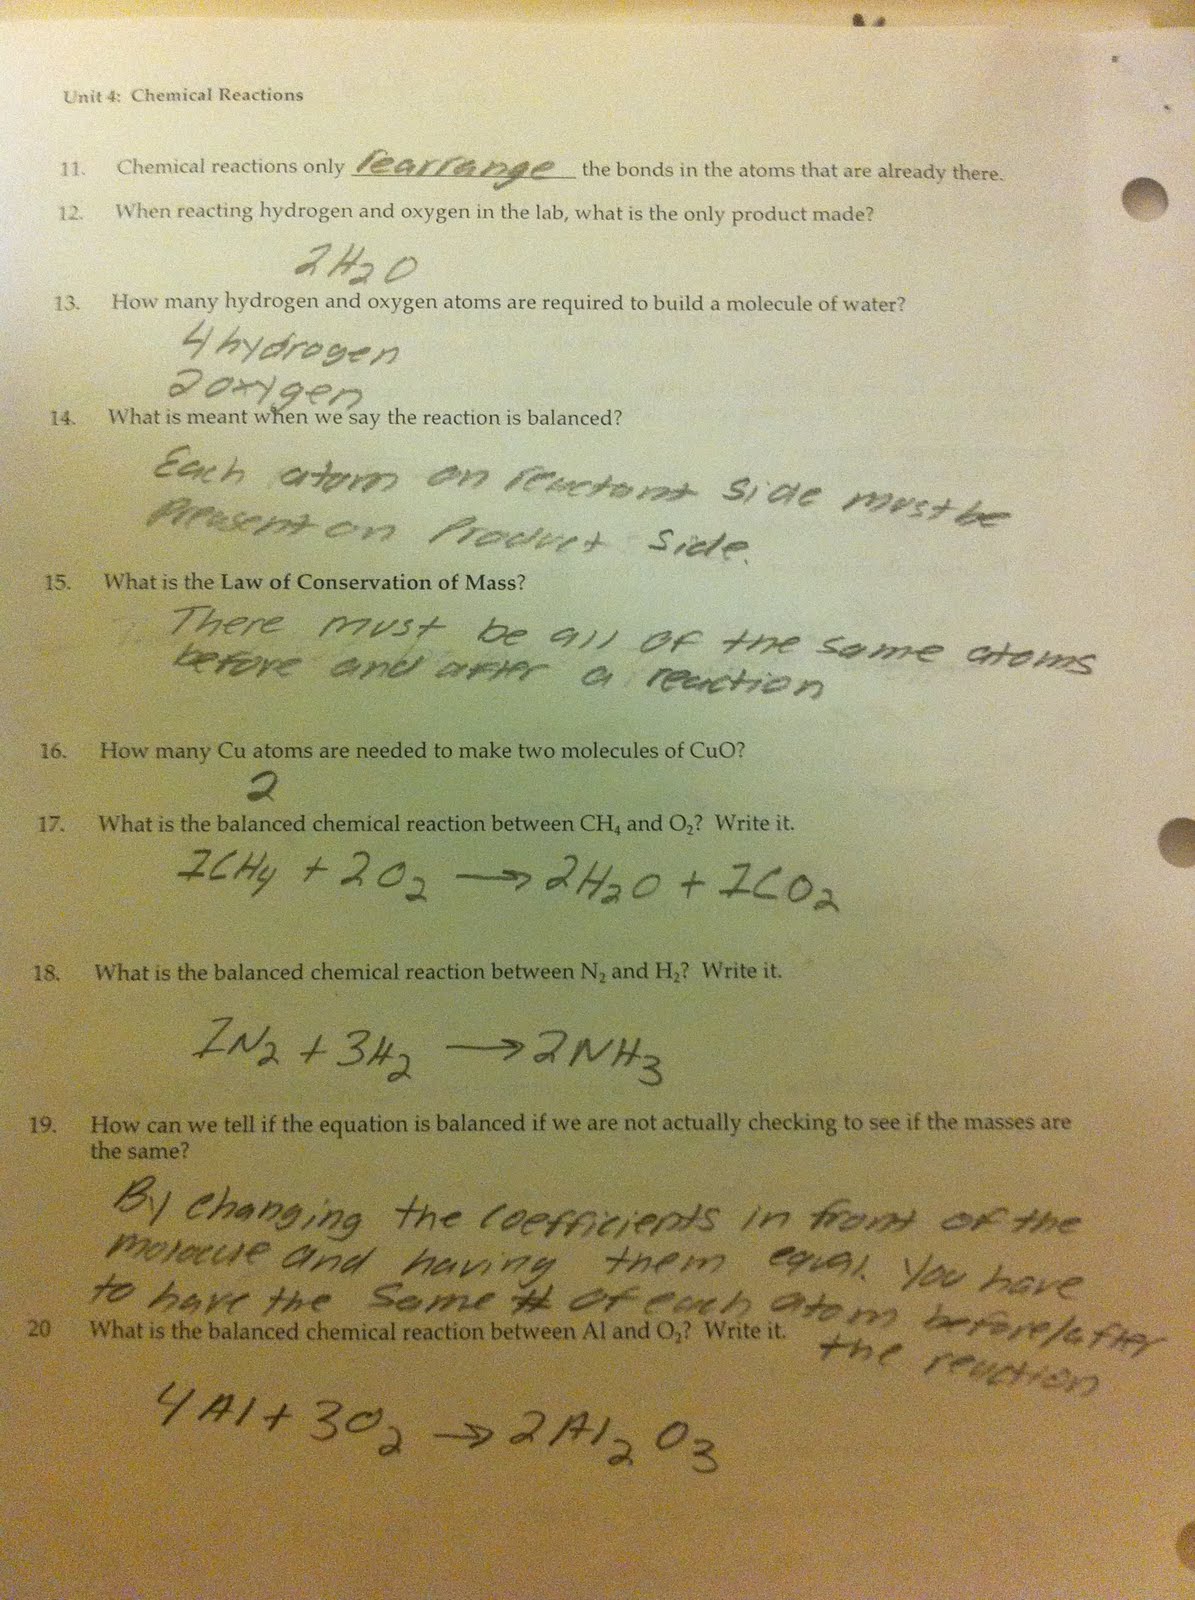 Unit 4: Chemical Reactions
11. Chemical reactions only rearrange the bonds in the atoms that are already there.
12. When reacting hydrogen and oxygen in the lab, what is the only product made?
2H₂O
13. How many hydrogen and oxygen atoms are required to build a molecule of water?
4 hydrogen
2 oxygen
14. What is meant when we say the reaction is balanced?
Each atom on reactant side must be
present on product side.
15. What is the Law of Conservation of Mass?
There must be all of the same atoms
before and after a reaction
16. How many Cu atoms are needed to make two molecules of CuO?
2
17. What is the balanced chemical reaction between CH₄ and O₂? Write it.
1CH₄ + 2O₂ → 2H₂O + 1CO₂
18. What is the balanced chemical reaction between N₂ and H₂? Write it.
1N₂ + 3H₂ → 2NH₃
19. How can we tell if the equation is balanced if we are not actually checking to see if the masses are
the same?
By changing the coefficients in front of the
molocule and having them equal. You have
to have the same # of each atom before/after
the reaction
20 What is the balanced chemical reaction between Al and O₂? Write it.
4Al + 3O₂ → 2Al₂O₃